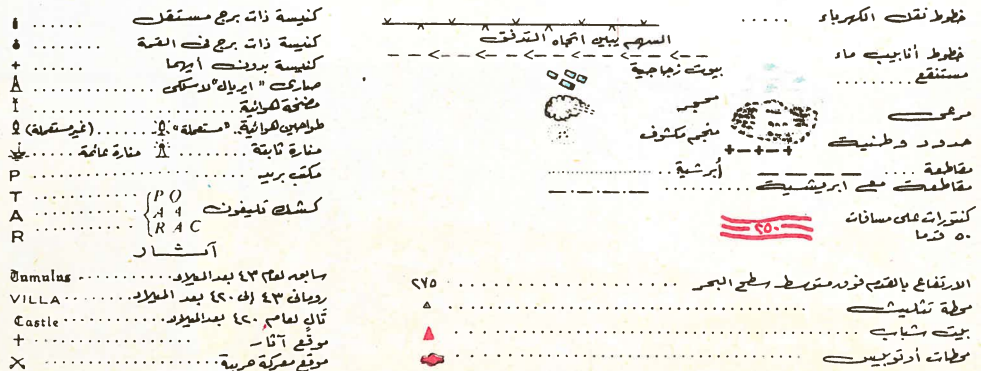 خطوط نقل الكهرباء .....
السهم يبين اتجاه التدفق
خطوط أنابيب ماء
مستنقع ........
بيوت زجاجية
محجر
مرعى
منجم مكشوف
حدود وطنية
مقاطعة ....
أبرشية ....
مقاطعة مع ابريشية ........
كنتورات على مسافات
٥٠ قدما
٢٥٠
الارتفاع بالقدم فوق متوسط سطح البحر ........ ٢٧٥
محطة تثليث ........
بيت شباب ........
محطات أوتوبيس ........
كنيسة ذات برج مستقل ........
كنيسة ذات برج فى القمة ........
كنيسة بدون أيهما ......
صارى "ايريال" لاسلكى ........
مضخة هوائية ........
طواحين هوائية .. "مستعملة" ...... (غير مستعملة)
منارة ثابتة ........ منارة عائمة ......
مكتب بريد ........ P
كشك تليفون
PO ........ T
AA ........ A
RAC ........ R
آثار
سابق لعام ٤٣ بعد الميلاد ........ Tumulus
رومانى ٤٣ إلى ٤٢٠ بعد الميلاد ........ VILLA
تال لعام ٤٢٠ بعد الميلاد ........ Castle
موقع آثار ........ +
موقع معركة حربية ........